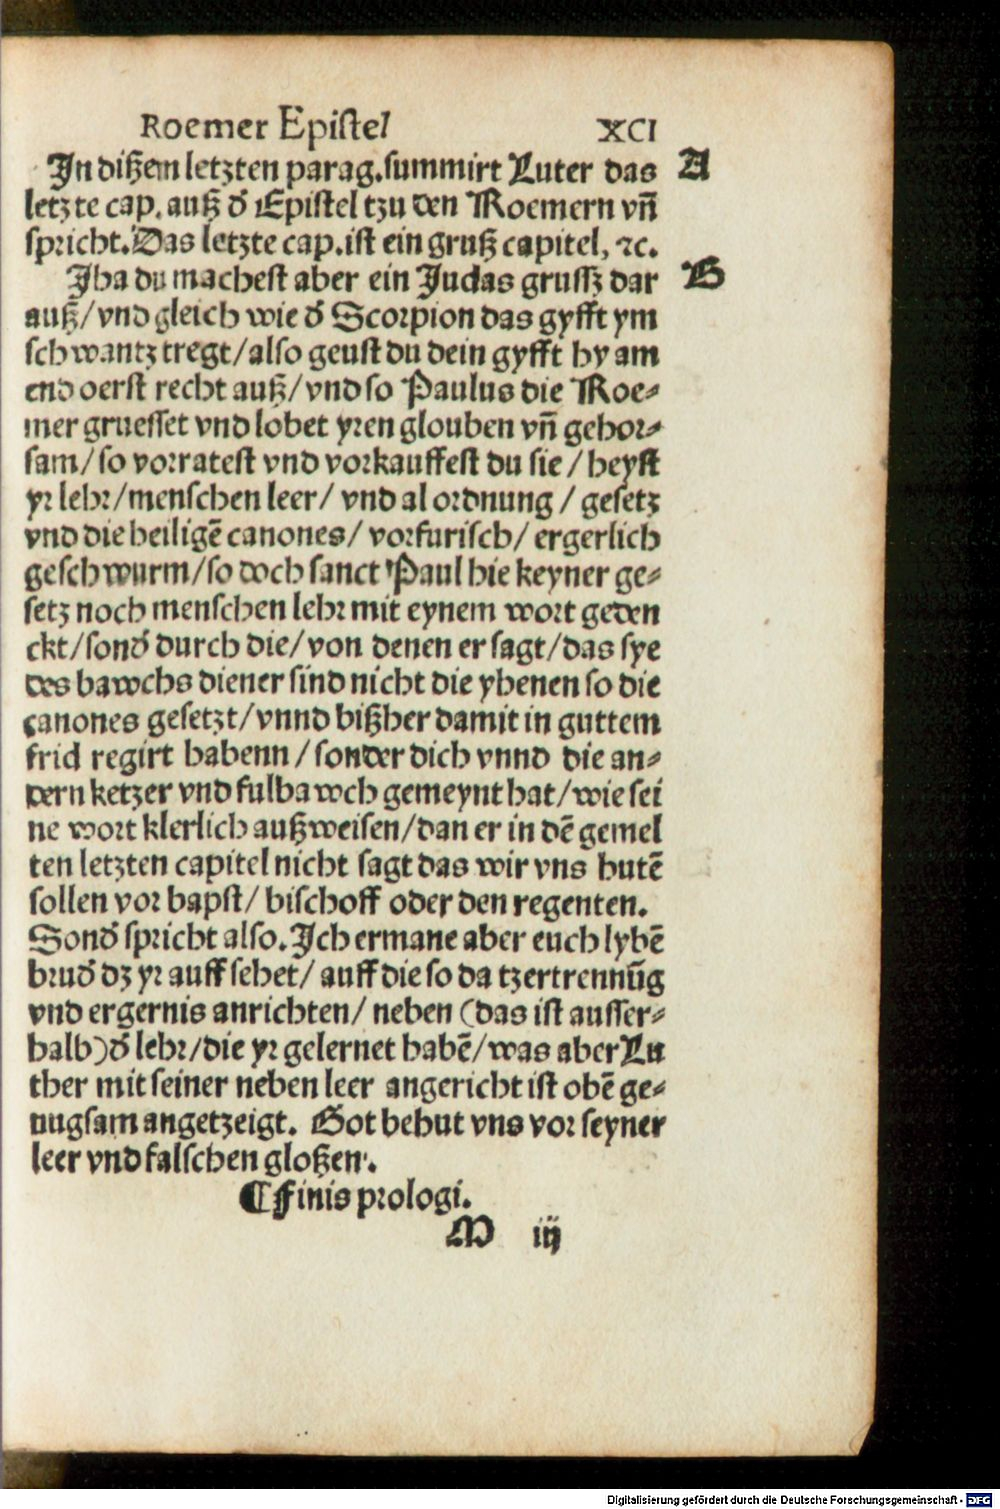 Roemer Epistel XCI
In dißem letzten parag. summirt Luter das A
letzte cap. auß d̕ Epistel tzu den Roemern vn̄
spricht. Das letzte cap. ist ein gruß capitel, ꝛc.
Jha du machest aber ein Judas grussz dar B
auß/ vnd gleich wie d̕ Scorpion das gyfft ym
schwantz tregt/ also geust du dein gyfft hy am
end oerst recht auß/ vnd so Paulus die Roe⸗
mer gruesset vnd lobet yren glouben vn̄ gehor⸗
sam/ so vorratest vnd vorkauffest du sie/ heyst
yr lehr/ menschen leer/ vnd al ordnung/ gesetz
vnd die heiligē canones/ vorfurisch/ ergerlich
geschwurm/ so doch sanct Paul hie keyner ge⸗
setz noch menschen lehr mit eynem wort geden
ckt/ sond̕ durch die/ von denen er sagt/ das sye
des bawchs diener sind nicht die yhenen so die
canones gesetzt/ vnnd bißher damit in guttem
frid regirt habenn/ sonder dich vnnd die an⸗
dern ketzer vnd fulbawch gemeynt hat/ wie sei
ne wort klerlich außweisen/ dan er in dē gemel
ten letzten capitel nicht sagt das wir vns hutē
sollen vor bapst/ bischoff oder den regenten.
Sond̕ spricht also. Ich ermane aber euch lybē
brud̕ dz yr auff sehet/ auff die so da tzertrennūg
vnd ergernis anrichten/ neben (das ist ausser⸗
halb) d̕ lehr/ die yr gelernet habē/ was aber Lu
ther mit seiner neben leer angericht ist obē ge⸗
nugsam angetzeigt. Got behut vns vor seyner
leer vnd falschen gloßen.
¶ Finis prologi.
M iij
Digitalisierung gefördert durch die Deutsche Forschungsgemeinschaft - DFG